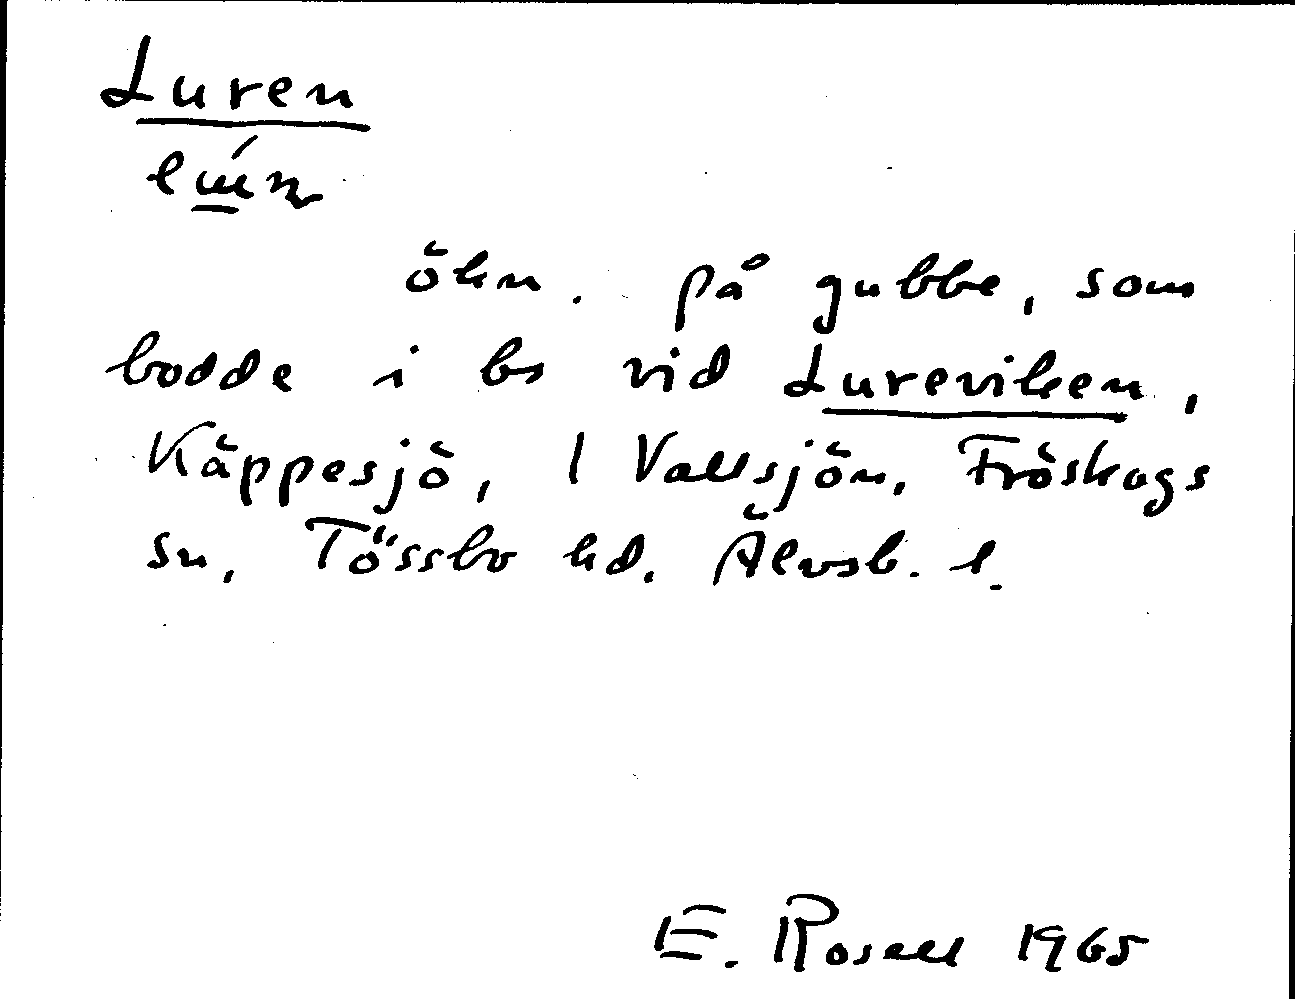 Luren
öhn. på gubbe, som
bodde i bs vid Lureviken,
Käppesjö, l Vallsjön, Fröskogs
sn, Tössbo hd. Älvsb. l.
E. Rosell 1965